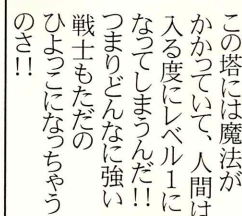 この塔には魔法が
かかっていて、人間は
入る度にレベル1に
なってしまうんだ!!
つまりどんなに強い
戦士もただの
ひよっこになっちゃう
のさ!!